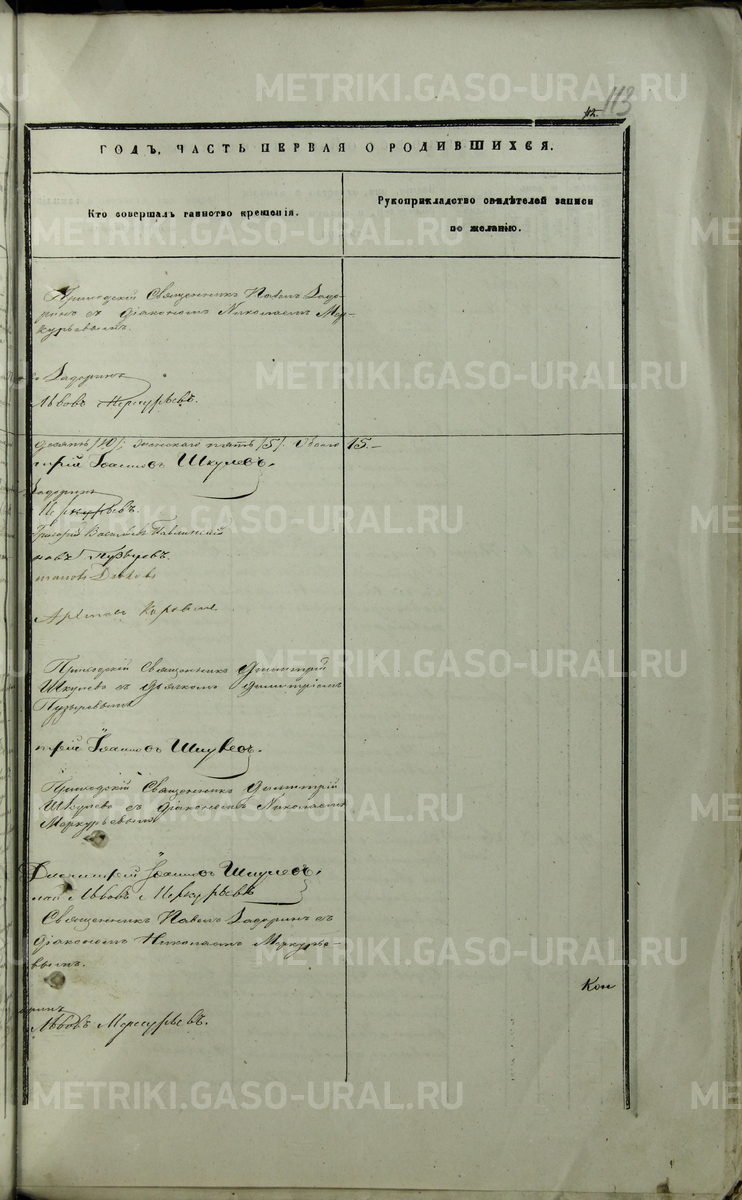 113
ГОДЪ, ЧАСТЬ ПЕРВАЯ О РОДИВШИХСЯ.
Кто совершалъ таинство крещенія.
Рукоприкладство свидѣтелей записи
по желанію.
Приходскій Священникъ Павелъ Задо-
ринъ съ діакономъ Николаемъ Мер-
курьевымъ.
Задоринъ
Львовъ Меркурьевъ.
десять /10/; женскаго пять /5/. Обоего 15.
трій Іоанновъ Шкулевъ.
Задоринъ
Меркурьевъ.
Григорій Васильевъ
Пузыревъ.
Приходскій Священникъ Димитрій
Шкулевъ съ дьячкомъ Димитріемъ
Пузыревымъ
трій Іоанновъ Шкулевъ.
Приходскій Священникъ Димитрій
Шкулевъ съ діакономъ Николаемъ
Меркурьевымъ
Димитрій Іоанновъ Шкулевъ.
лай Львовъ Меркурьевъ
Священникъ Павелъ Задоринъ съ
діакономъ Николаемъ Меркурье-
вымъ.
Кон
оринъ
Львовъ Меркурьевъ.
METRIKI.GASO-URAL.RU